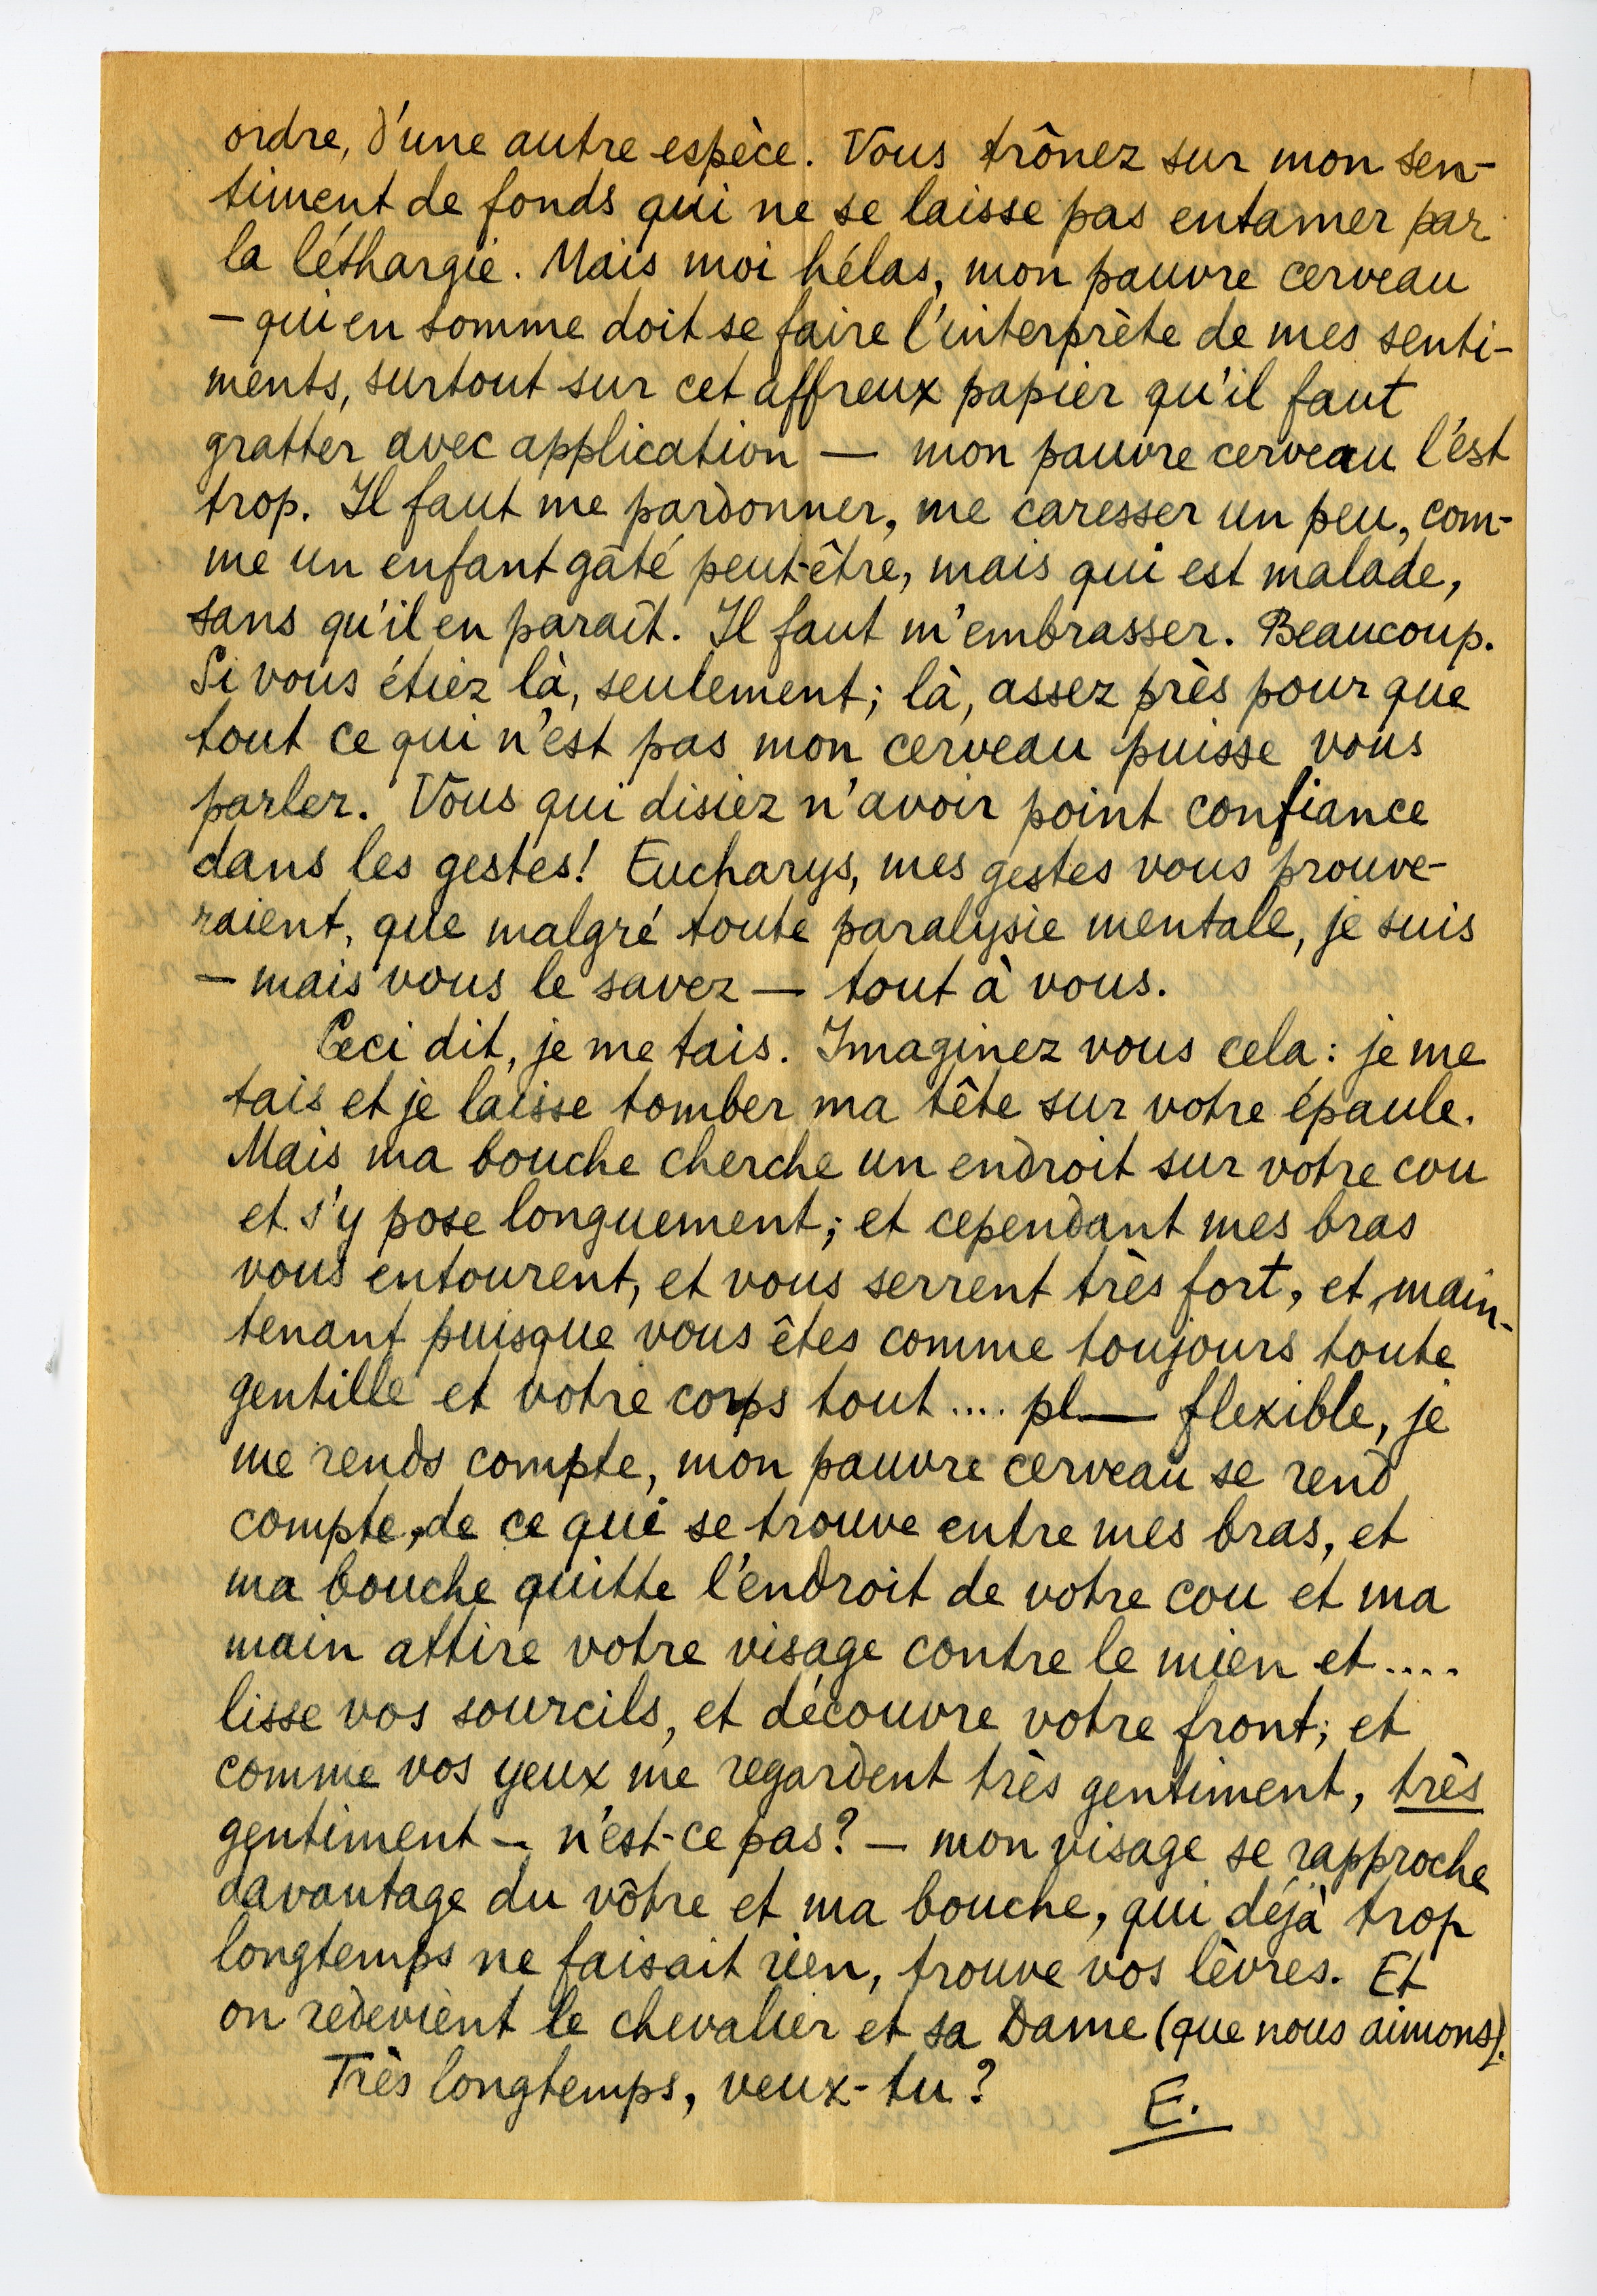 ordre, d'une autre espèce. Vous trônez sur mon sen-
timent de fonds qui ne se laisse pas entamer par
la léthargie. Mais moi hélas, mon pauvre cerveau
— qui en somme doit se faire l'interprète de mes senti-
ments, surtout sur cet affreux papier qu'il faut
gratter avec application — mon pauvre cerveau l'est
trop. Il faut me pardonner, me caresser un peu, com-
me un enfant gâté peut-être, mais qui est malade,
sans qu'il en paraît. Il faut m'embrasser. Beaucoup.
Si vous étiez là, seulement; là, assez près pour que
tout ce qui n'est pas mon cerveau puisse vous
parler. Vous qui disiez n'avoir point confiance
dans les gestes! Eucharys, mes gestes vous prouve-
raient, que malgré toute paralysie mentale, je suis
— mais vous le savez — tout à vous.
Ceci dit, je me tais. Imaginez vous cela: je me
tais et je laisse tomber ma tête sur votre épaule.
Mais ma bouche cherche un endroit sur votre cou
et s'y pose longuement; et cependant mes bras
vous entourent, et vous serrent très fort, et main-
tenant puisque vous êtes comme toujours toute
gentille et votre corps tout .... pl— flexible, je
me rends compte, mon pauvre cerveau se rend
compte, de ce qui se trouve entre mes bras, et
ma bouche quitte l'endroit de votre cou et ma
main attire votre visage contre le mien et .....
lisse vos sourcils, et découvre votre front; et
comme vos yeux me regardent très gentiment, très
gentiment — n'est-ce pas? — mon visage se rapproche
davantage du vôtre et ma bouche, qui déjà trop
longtemps ne faisait rien, trouve vos lèvres. Et
on redevient le chevalier et sa Dame (que nous aimons).
Très longtemps, veux-tu?
E.